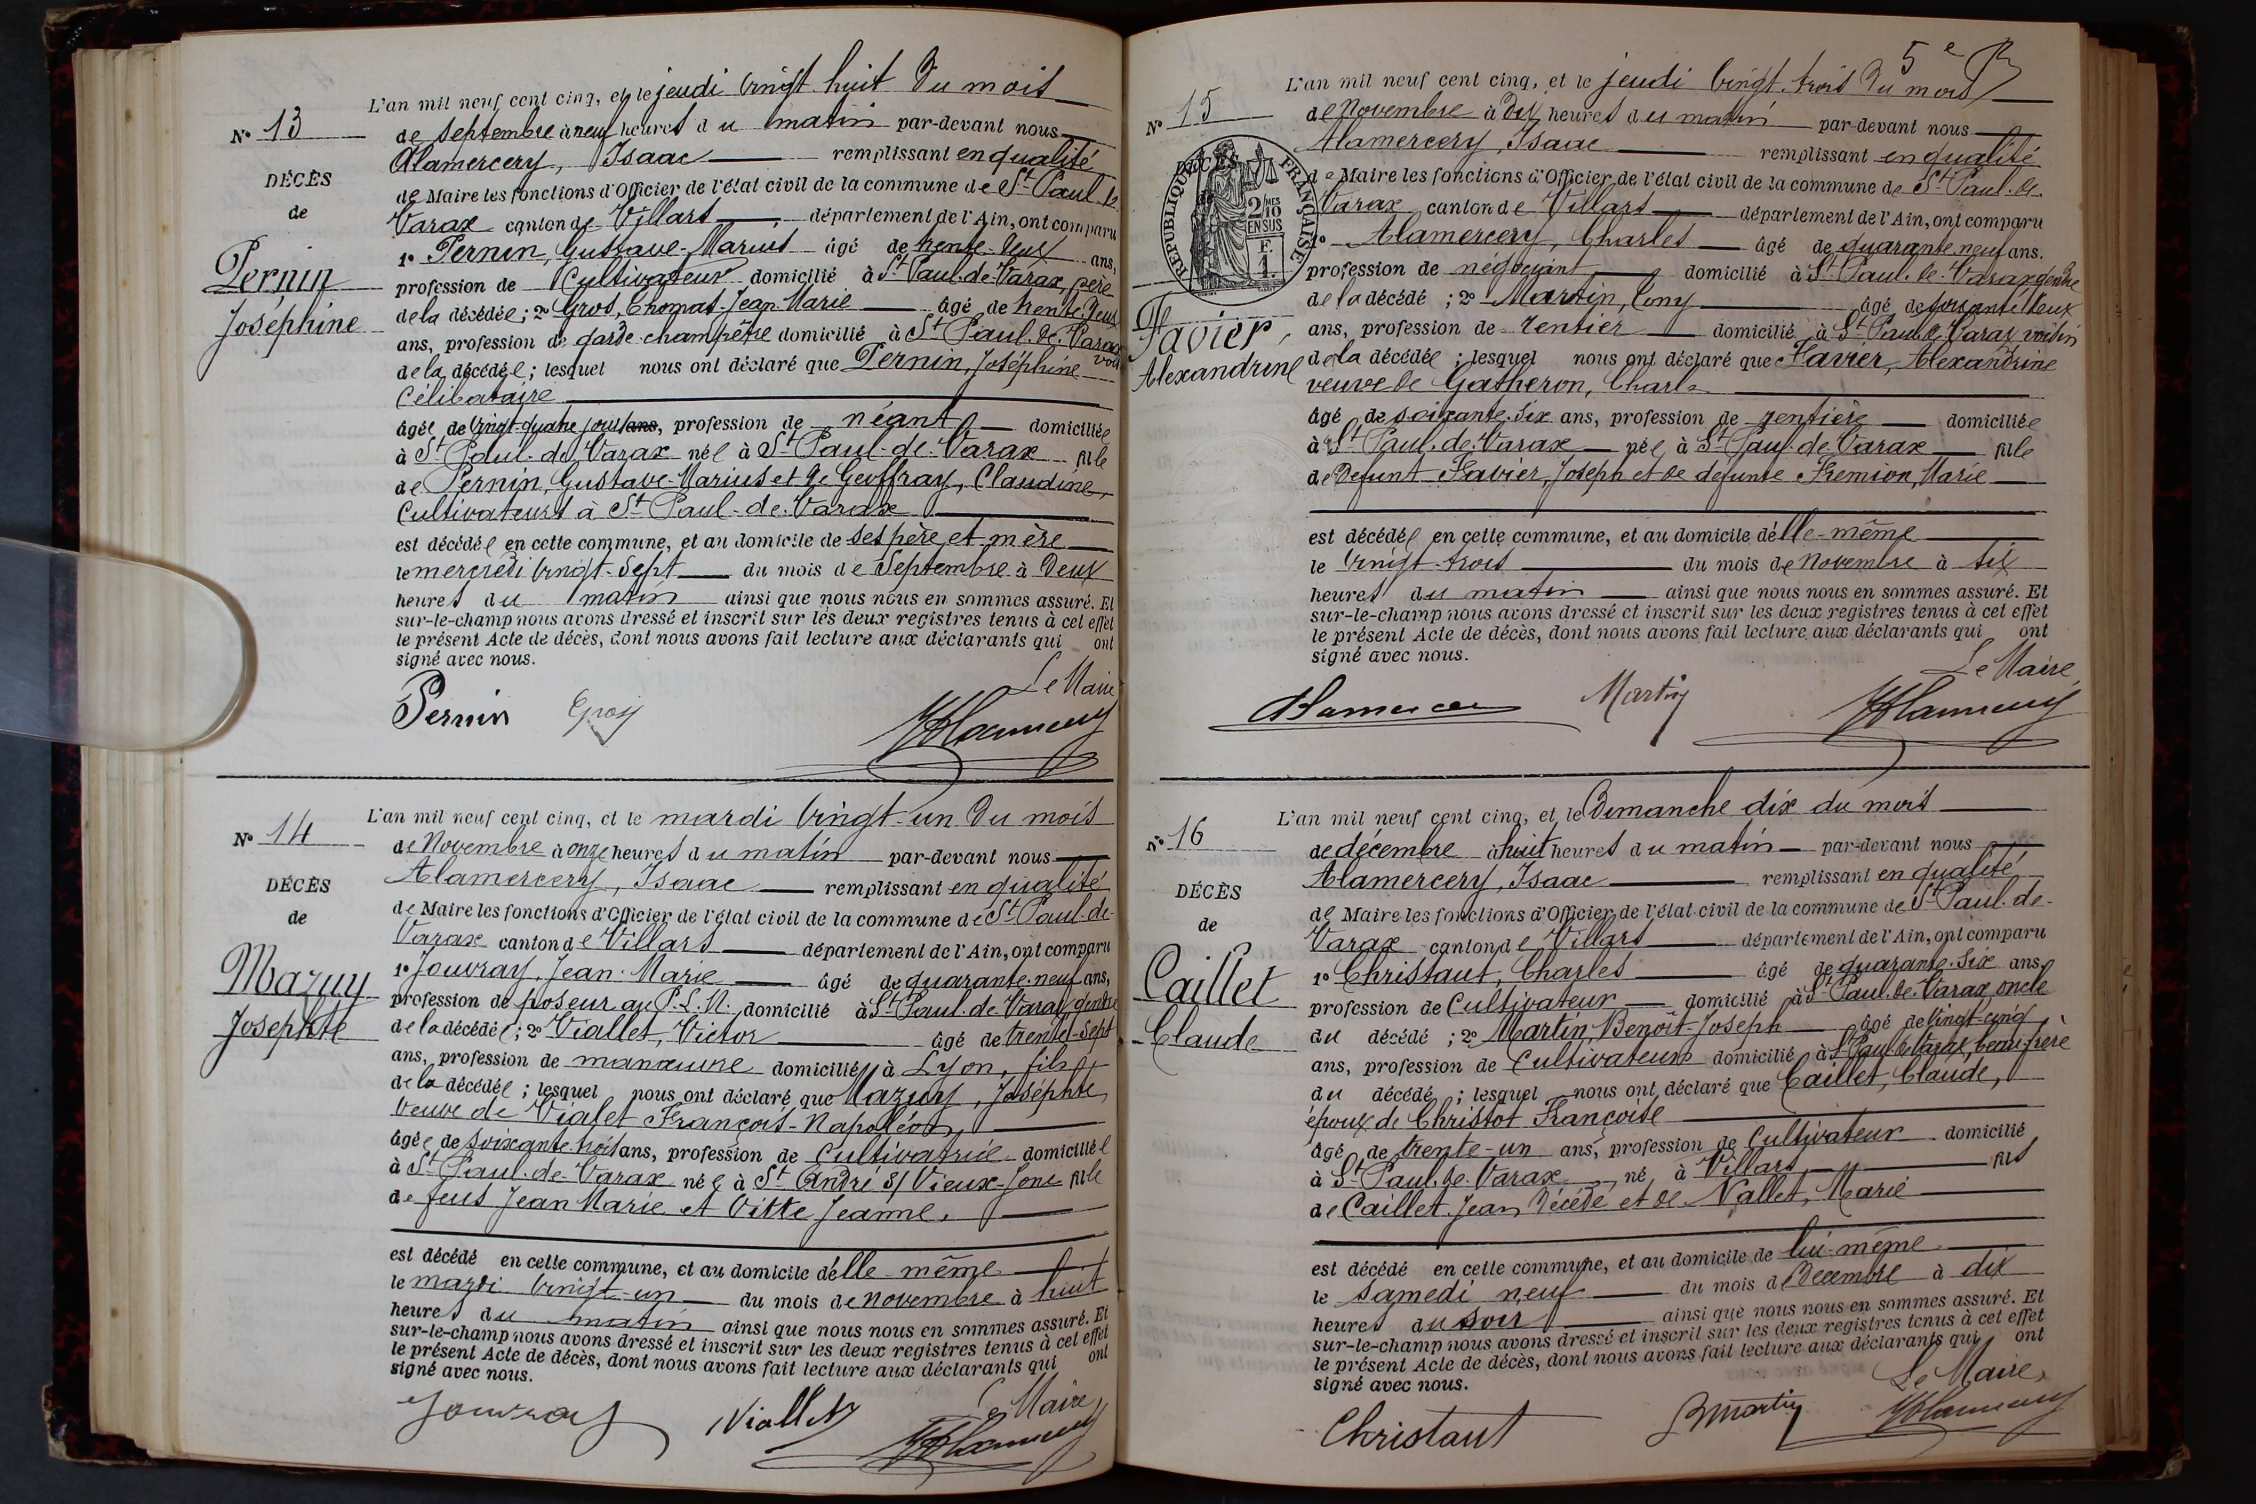 N° 13
DÉCÈS
de
Pernin
Joséphine
L'an mil neuf cent cinq, et le jeudi vingt huit du mois
de septembre à neuf heures du matin par-devant nous
Alamercery, Isaac remplissant en qualité
de Maire les fonctions d'Officier de l'état civil de la commune de St Paul de
Varax canton de Villars département de l'Ain, ont comparu
1° Pernin, Gustave-Marius âgé de trente-deux ans,
profession de Cultivateur domicilié à St Paul-de-Varax, père
de la décédée; 2° Gros, Thomas-Jean-Marie âgé de trente-deux
ans, profession de garde-champêtre domicilié à St Paul-de-Varax
de la décédée; lesquel nous ont déclaré que Pernin, Joséphine
Célibataire
âgée de vingt-quatre jours ans, profession de néant domiciliée
à St Paul-de-Varax née à St Paul-de-Varax fille
de Pernin, Gustave-Marius et de Geoffray, Claudine,
Cultivateurs à St Paul-de-Varax
est décédée en cette commune, et au domicile de ses père et mère
le mercredi vingt-sept du mois de Septembre à deux
heures du matin ainsi que nous nous en sommes assuré. Et
sur-le-champ nous avons dressé et inscrit sur les deux registres tenus à cet effet
le présent Acte de décès, dont nous avons fait lecture aux déclarants qui ont
signé avec nous.
Le Maire
Pernin Gros
N° 14
DÉCÈS
de
Mazuy
Josephte
L'an mil neuf cent cinq, et le mardi vingt-un du mois
de Novembre à onze heures du matin par-devant nous
Alamercery, Isaac remplissant en qualité
de Maire les fonctions d'Officier de l'état civil de la commune de St Paul-de-
Varax canton de Villars département de l'Ain, ont comparu
1° Jouvray, Jean-Marie âgé de quarante-neuf ans,
profession de poseur au P.L.M. domicilié à St Paul-de-Varax, gendre
de la décédée; 2° Viallet, Victor âgé de trente-sept
ans, profession de manœuvre domicilié à Lyon, fils
de la décédée; lesquel nous ont déclaré que Mazuy, Joséphte,
veuve de Vialet François-Napoléon,
âgée de soixante-trois ans, profession de Cultivatrice domiciliée
à St Paul-de-Varax née à St André s/ Vieux-Jonc fille
de feus Jean Marie et Vitte Jeanne,
est décédé en cette commune, et au domicile d'elle-même
le mardi vingt-un du mois de novembre à huit
heures du matin ainsi que nous nous en sommes assuré. Et
sur-le-champ nous avons dressé et inscrit sur les deux registres tenus à cet effet
le présent Acte de décès, dont nous avons fait lecture aux déclarants qui ont
signé avec nous.
Le Maire
Jouvray Viallet
5e
N° 15
RÉPUBLIQUE FRANÇAISE
DÉCÈS
2/10 MES
EN SUS
F.
1.
Favier,
Alexandrine
L'an mil neuf cent cinq, et le jeudi vingt-trois du mois
de Novembre à dix heures du matin par-devant nous
Alamercery, Isaac remplissant en qualité
de Maire les fonctions d'Officier de l'état civil de la commune de St Paul-de-
Varax canton de Villars département de l'Ain, ont comparu
1° Alamercery, Charles âgé de quarante-neuf ans.
profession de négociant domicilié à St Paul-de-Varax gendre
de la décédé; 2° Martin, Cony âgé de soixante-deux
ans, profession de rentier domicilié à St Paul de Varax voisin
de la décédée; lesquel nous ont déclaré que Favier, Alexandrine
veuve de Gatheron, Charles
âgé de soixante-six ans, profession de rentière domiciliée
à St Paul-de-Varax née à St Paul-de-Varax fille
de Defunt Favier, Joseph et de defunte Fremion, Marie
est décédée en cette commune, et au domicile d'elle-même
le vingt-trois du mois de Novembre à six
heures du matin ainsi que nous nous en sommes assuré. Et
sur-le-champ nous avons dressé et inscrit sur les deux registres tenus à cet effet
le présent Acte de décès, dont nous avons fait lecture aux déclarants qui ont
signé avec nous.
Le Maire
Alamercery Martin
N° 16
DÉCÈS
de
Caillet
Claude
L'an mil neuf cent cinq, et le Dimanche dix du mois
de décembre à huit heures du matin par-devant nous
Alamercery, Isaac remplissant en qualité
de Maire les fonctions d'Officier de l'état civil de la commune de St Paul-de-
Varax canton de Villars département de l'Ain, ont comparu
1° Christaut, Charles âgé de quarante-six ans.
profession de Cultivateur domicilié à St Paul-de-Varax, oncle
du décédé; 2° Martin, Benoît-Joseph âgé de vingt-cinq
ans, profession de Cultivateur domicilié à St Paul de Varax, beau-frère
du décédé; lesquel nous ont déclaré que Caillet, Claude,
époux de Christot Françoise
âgé de trente-un ans, profession de Cultivateur domicilié
à St Paul-de-Varax né à Villars fils
de Caillet Jean décédé et de Nallet, Marie
est décédé en cette commune, et au domicile de lui-même
le samedi neuf du mois de Decembre à dix
heures du soir ainsi que nous nous en sommes assuré. Et
sur-le-champ nous avons dressé et inscrit sur les deux registres tenus à cet effet
le présent Acte de décès, dont nous avons fait lecture aux déclarants qui ont
signé avec nous.
Le Maire,
Christaut Bmartin